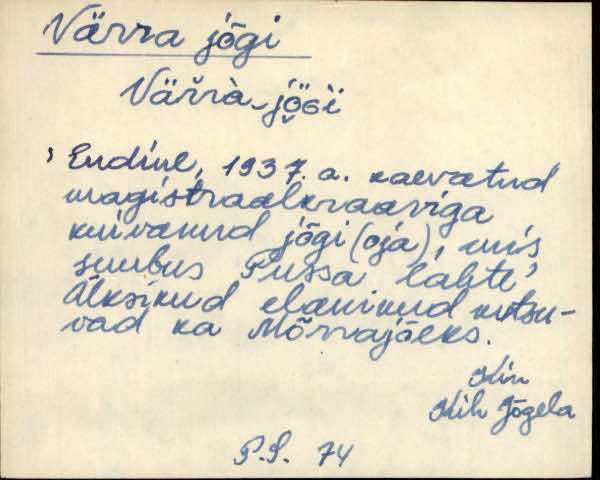 Värra jõgi
Värrà-jõGi
' Endine, 1937. a. kaevatud
magistraalkraaviga
kuivanud jõgi (oja), mis
suubus Pussa lahte'
Üksikud elanikud kutsu-
vad ka Mõrrajõeks.
Kin
Kih Jõgela
P.S. 74